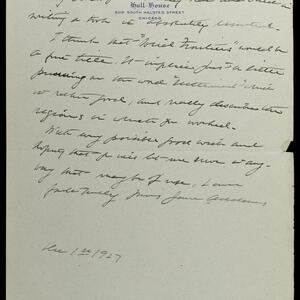 writing a book is absolutely essential.
Hull-House
800 South Halsted Street
Chicago
I think that "Social Frontiers" would be
a fine title. It implies just a little
on the word "Settlement" which
is rather good, and really describes the
regions in which we worked.
With every possible good wish and
hoping that you will let me serve in any
way that may be of use, I am
faithfully yours Jane Addams
Dec 1st 1927